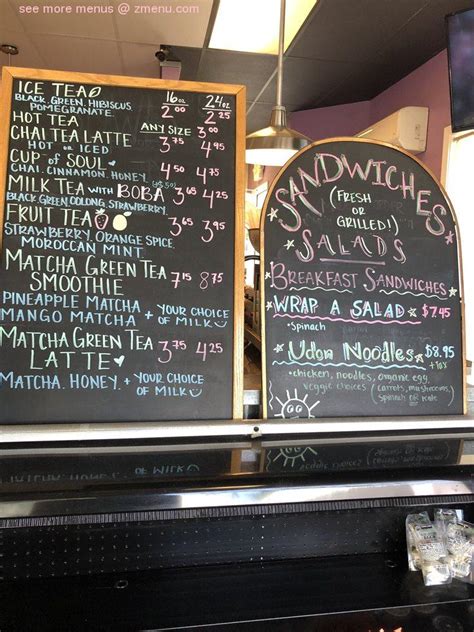 see more menus @ zmenu.com
16oz 24oz
ICE TEA 2.00 2.25
BLACK, GREEN, HIBISCUS
POMEGRANATE
HOT TEA ANY SIZE 3.00
CHAI TEA LATTE 3.75 4.95
HOT OR ICED
CUP OF SOUL 4.50 4.75
CHAI, CINNAMON, HONEY
MILK TEA WITH BOBA 3.65 3.95
BLACK, GREEN, OOLONG, STRAWBERRY
FRUIT TEA 3.65 3.95
STRAWBERRY, ORANGE SPICE,
MOROCCAN MINT
MATCHA GREEN TEA
SMOOTHIE 7.15 8.75
PINEAPPLE MATCHA + YOUR CHOICE
MANGO MATCHA OF MILK
MATCHA GREEN TEA
LATTE 3.75 4.25
MATCHA, HONEY, + YOUR CHOICE
OF MILK
SANDWICHES
(FRESH
OR
GRILLED!)
SALADS
BREAKFAST SANDWICHES
WRAP A SALAD $7.45
•spinach
Udon Noodles $8.95
+ tax
•chicken, noodles, organic egg,
veggie choices (carrots, mushrooms,
spinach OR kale)